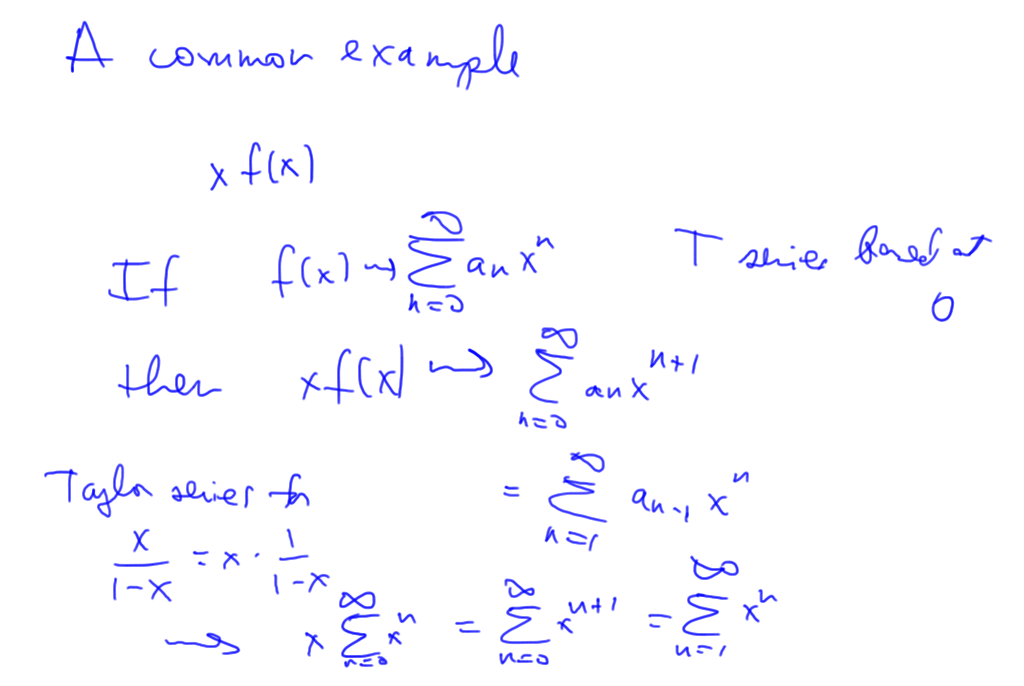 A common example
x f(x)
If f(x) ⇝ ∑_{n=0}^{∞} aₙ xⁿ T series based at 0
then xf(x) ⇝ ∑_{n=0}^{∞} aₙ x^{n+1}
= ∑_{n=1}^{∞} a_{n-1} xⁿ
Taylor series for
x/(1-x) = x · 1/(1-x)
⇝ x ∑_{n=0}^{∞} xⁿ = ∑_{n=0}^{∞} x^{n+1} = ∑_{n=1}^{∞} xⁿ